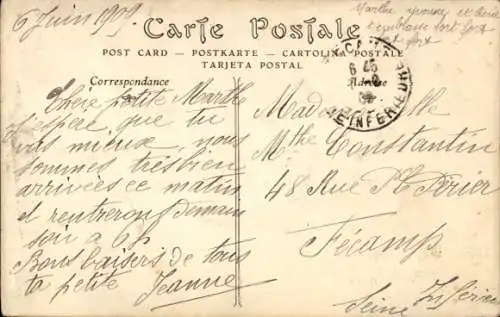 6 Juin 1909
Carte Postale
Marthe
t'embrasse fort fort
fort
POST CARD — POSTKARTE — CARTOLINA POSTALE
TARJETA POSTAL
Correspondance
Adresse
INFERIEURE
Chère petite Marthe
J'espère que tu
vas mieux, nous
sommes très bien
arrivées ce matin
et rentrerons demain
soir à 6h
Bons baisers de tous
ta petite Jeanne
Mademoiselle
Mthe Constantin
48 Rue Périer
Fécamp
Seine Inférieure